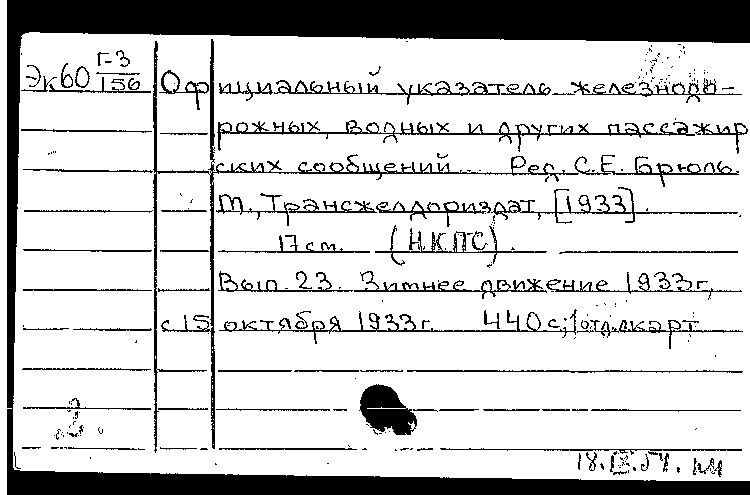 Эк60 Г-3/156
Официальный указатель железнодо-
рожных, водных и других пассажир
ских сообщений... Ред. С.Е. Брюль.
М., Трансжелдориздат, [1933].
17 см. (НКПС).
Вып. 23. Зимнее движение 1933 г,
с 15 октября 1933 г. 440 с; 1 отд. л карт
2.
18.IX.54.